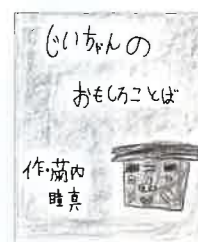 じいちゃんの
おもしろことば
作・菊内